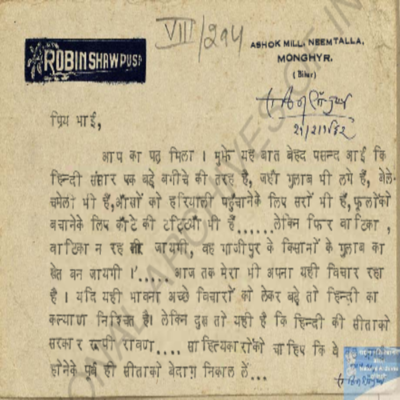 ROBINSHAW PUSP
VIII/294
ASHOK MILL, NEEMTALLA,
MONGHYR.
(Bihar)
प्रिय भाई,
आप का पत्र मिला । मुझे यह बात बेहद पसन्द आई कि
हिन्दी संसार एक बड़े बगीचे की तरह है, जहाँ गुलाब भी लगे हैं, बेले-
चमेली भी हैं, आँखों को हरियाली पहुँचानेके लिए सरो भी हैं, फूलोंको
बचानेके लिए काँटे की टट्टियाँ भी हैं......लेकिन फिर वाटिका,
वाटिका न रह जायगी, वह गाजीपुर के किसानों के गुलाब का
खेत बन जायगी ।'..... आज तक मेरा भी अपना यही विचार रहा
है । यदि यही भावना अच्छे विचारों को लेकर बढ़े तो हिन्दी का
कल्याण निश्चित है। लेकिन दुख तो यही है कि हिन्दी की सीताको
सरकार रूपी रावण.... साहित्यकारोंको चाहिए कि वे
होनेके पूर्व ही सीताको बेदाग़ निकाल लें...